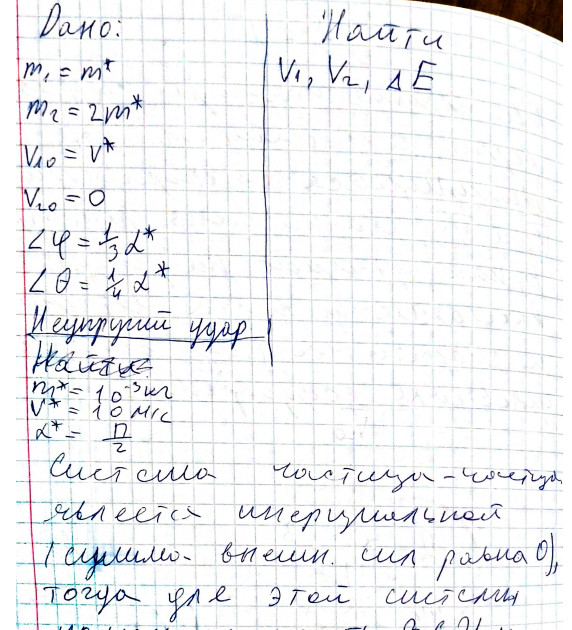 Дано:
Найти
m₁ = m*
V₁, V₂, ΔE
m₂ = 2m*
V₁₀ = V*
V₂₀ = 0
∠φ = 1/3 α*
∠θ = 1/4 α*
Неупругий удар
Найти
m* = 10⁻³ кг
V* = 10 м/с
α* = П/2
Система частица-частица
является инерциальной
(сумма внешн. сил равна 0),
тогда для этой системы